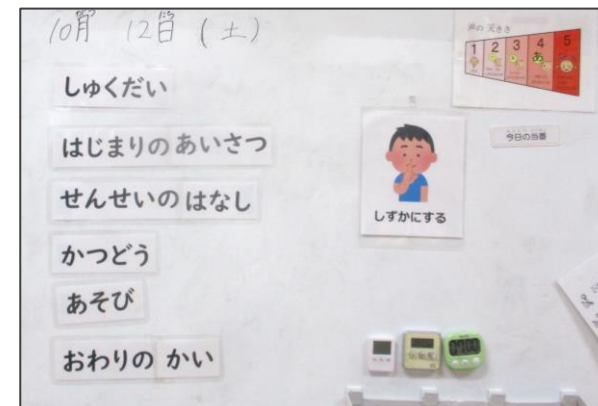 10月 12日 (土)
しゅくだい
はじまりの あいさつ
せんせいの はなし
かつどう
あそび
おわりの かい
声の 大きさ
1 2 3 4 5
あ
今日の当番
しずかにする